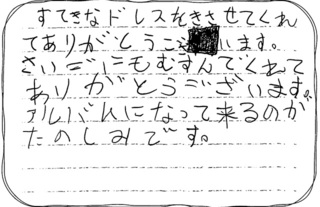 すてきなドレスをきさせてくれ
てありがとうございます。
さいごにもむすんでくれて
ありがとうございます。
アルバムになって来るのが
たのしみです。